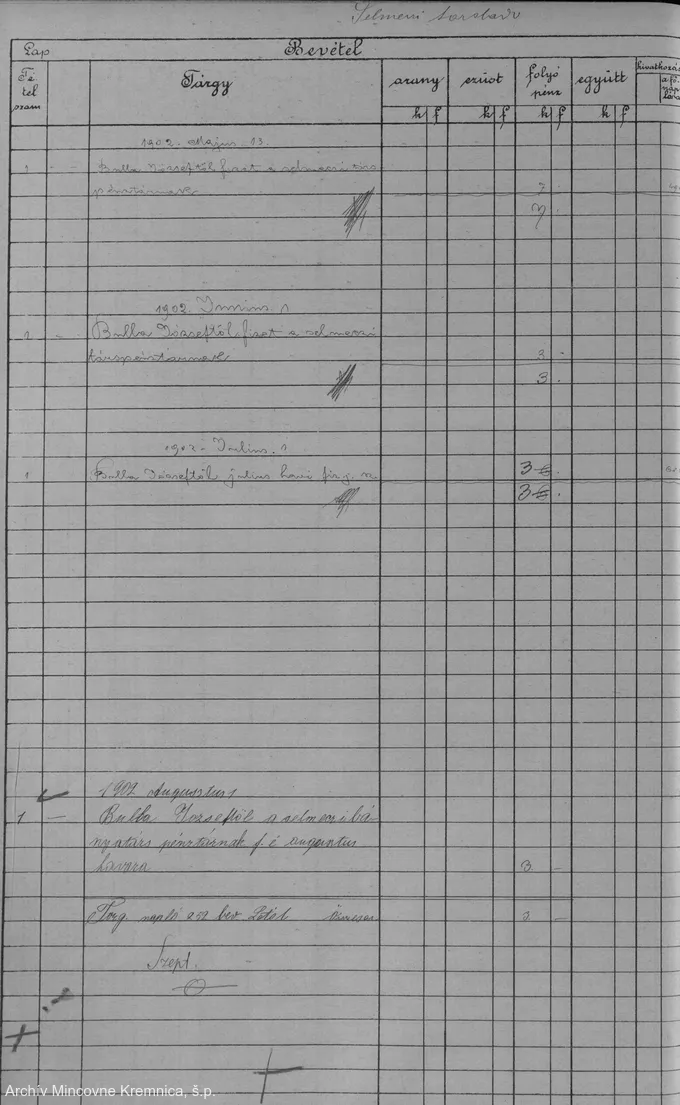 Selmeci
Lap
Bevétel
Tétel szám
Tárgy
arany
ezüst
folyó pénz
együtt
hivatkozás
k f
k f
k f
k f
1902. Május 13.
1 - Bulla Józseftől fizet a selmeczi társ
pénztárnak 7.
7.
1902. Junius. 1
1 - Bulla Józseftől fizet a selmeczi
társpénztárnak 3 -
3.
1902. Julius. 1
1 Bulla Józseftől július havi 3
3
1902 Augusztus 1
1 - Bulla Józseftől a selmeczi bá
nyatárs pénztárnak f. é augusztus
havára 3 -
napló bev tétel 3 -
Szept.
Archív Mincovne Kremnica, š.p.